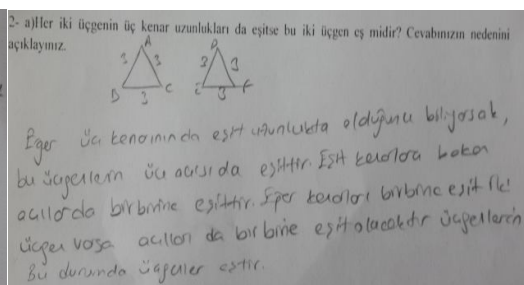 2- a)Her iki üçgenin üç kenar uzunlukları da eşitse bu iki üçgen eş midir? Cevabınızın nedenini
açıklayınız.
A D
3 3 3 3
B 3 C E 3 F
Eğer üç kenarınında eşit uzunlukta olduğunu biliyorsak,
bu üçgenlerin üç açısı da eşittir. Eşit kenarlara bakan
açılarda birbirine eşittir. Eğer kenarları birbirine eşit iki
üçgen varsa açıları da birbirine eşit olacaktır üçgenlerin
Bu durumda üçgenler eştir.